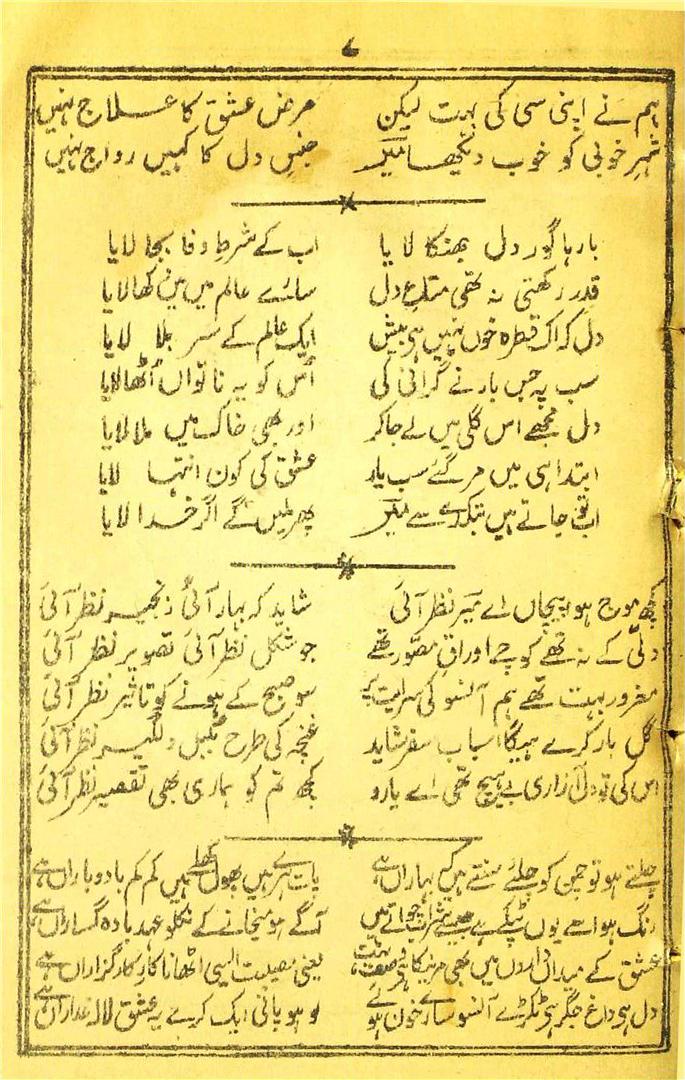 ۷
ہم نے اپنی سی کی بہت لیکن مرض عشق کا علاج نہیں
شہرِ خوبی کو خوب دیکھا میرؔ جنسِ دل کا کہیں رواج نہیں
بارہا گور دل جھنکا لایا اب کے شرطِ وفا بجا لایا
قدر رکھتی نہ تھی متاعِ دل سارے عالم میں میں دکھا لایا
دل کہ اک قطرہ خوں نہیں ہی بیش ایک عالم کے سر بلا لایا
سب پہ جس بار نے گرانی کی اُس کو یہ ناتواں اُٹھا لایا
دل مجھے اس گلی میں لے جا کر اور بھی خاک میں ملا لایا
ابتدا ہی میں مر گئے سب یار عشق کی کون انتہا لایا
اب تو جاتے ہیں بتکدے سے میرؔ پھر ملیں گے اگر خدا لایا
کچھ موج ہوا پیچاں اے میرؔ نظر آئی شاید کہ بہار آئی زنجیر نظر آئی
دلّی کے نہ تھے کوچے اوراقِ مصور تھے جو شکل نظر آئی تصویر نظر آئی
مغرور بہت تھے ہم آنسو کی سرایت پر سو صبح کے ہونے کو تاثیر نظر آئی
گل بار کرے ہیگا اسباب سفر شاید غنچہ کی طرح بلبل دلگیر نظر آئی
اس کی تو دل آزاری بے ہیچ تھی اے یارو کچھ تم کو ہماری بھی تقصیر نظر آئی
چلتے ہو تو چمن کو چلئے سنتے ہیں کہ بہاراں ہے پات ہرے ہیں پھول کھلے ہیں کم کم باد و باراں ہے
رنگ ہوا سے یوں ٹپکے ہے جیسے شراب چواتے ہیں آگے ہو میخانے کے نکلو عہد بادہ گساراں ہے
عشق کے میداں داروں میں بھی مرنے کا ہے وصف بہت یعنی مصیبت ایسی اٹھانا کارِ کار گزاراں ہے
دل ہی داغ جگر ہی ٹکڑے آنسو سارے خون ہوئے لوہو پانی ایک کرے یہ عشق لالہ عذاراں ہے